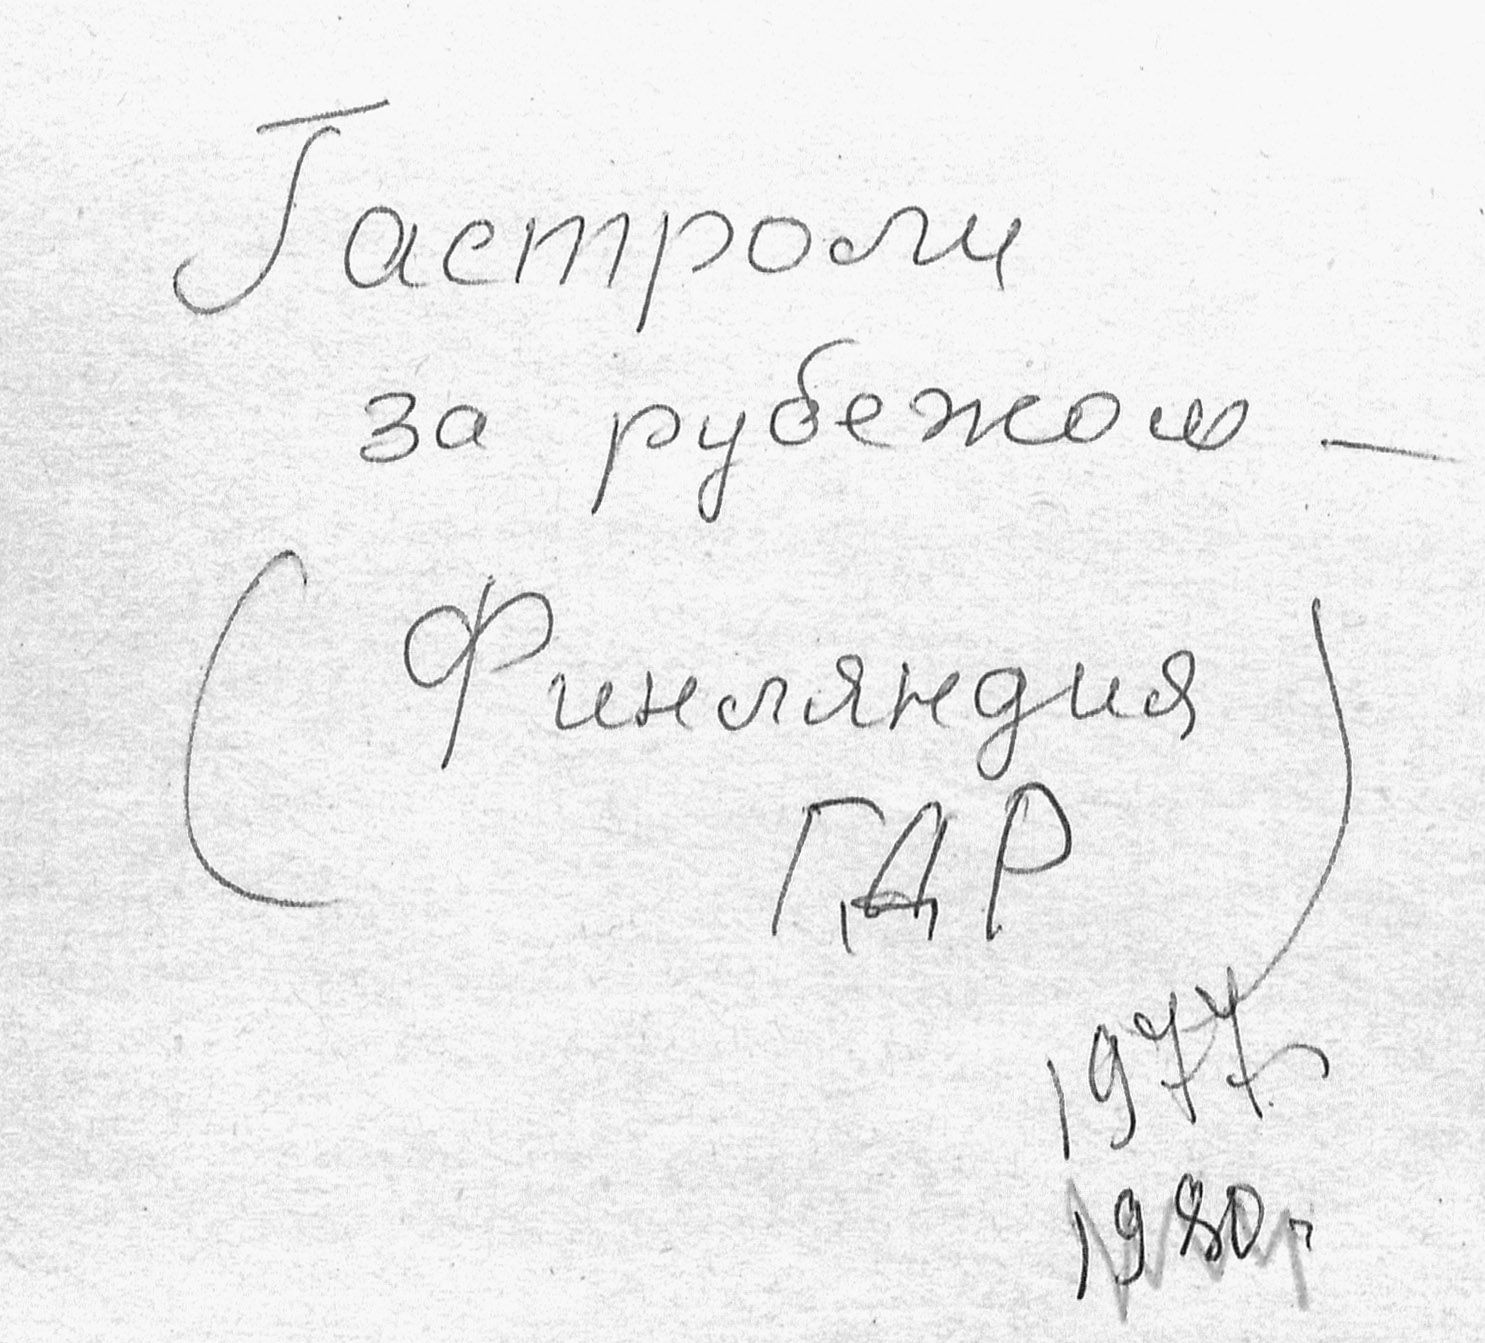 Гастроли
за рубежом —
(Финляндия
ГДР)
1977
1980 г